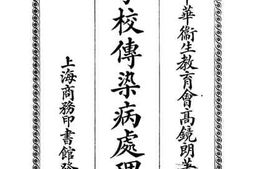 中華衞生教育會高鏡朗著
學校傳染病處理
上海商務印書館發